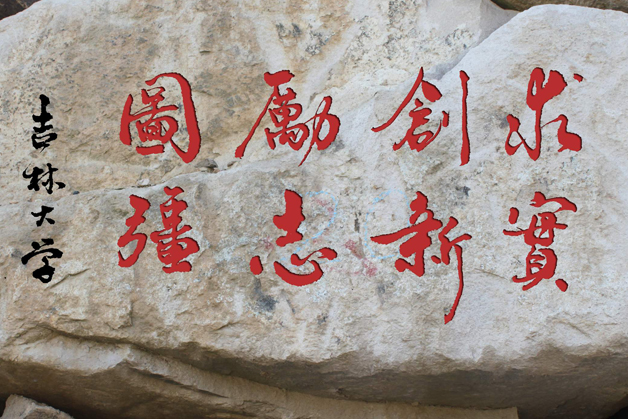 求實
創新
勵志
圖疆
吉林大学